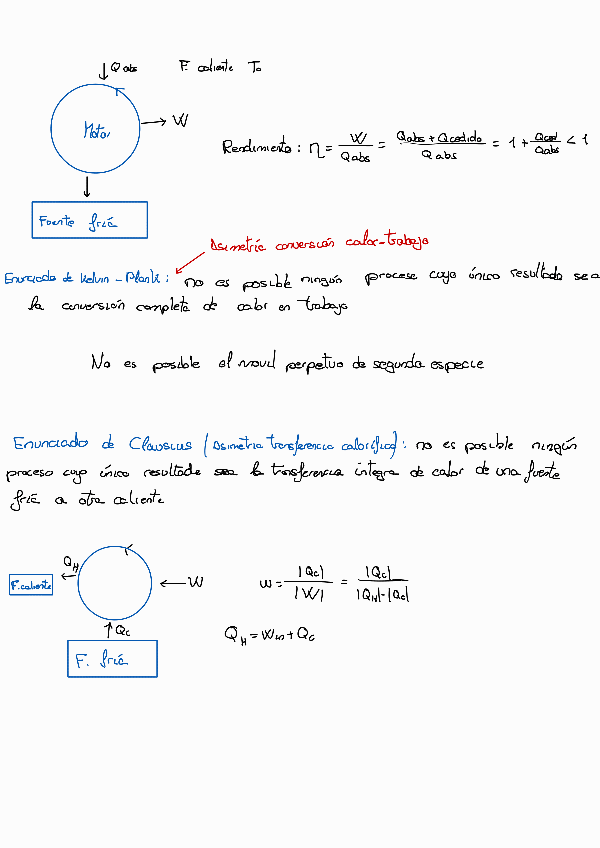 Qabs F. caliente To
Motor
W
Rendimiento: η = W / Qabs = Qabs + Qcedido / Qabs = 1 + Qced / Qabs < 1
Fuente fría
Asimetría conversión calor-trabajo
Enunciado de Kelvin - Plank: no es posible ningún proceso cuyo único resultado sea
la conversión completa de calor en trabajo
No es posible el movil perpetuo de segunda especie
Enunciado de Clausius (Asimetria transferencia calorífica): no es posible ningún
proceso cuyo único resultado sea la transferencia integra de calor de una fuente
fría a otra caliente
QH
F. caliente
W
w = |Qc| / |W| = |Qc| / |QH|-|Qc|
Qc
QH = Win + Qc
F. fría